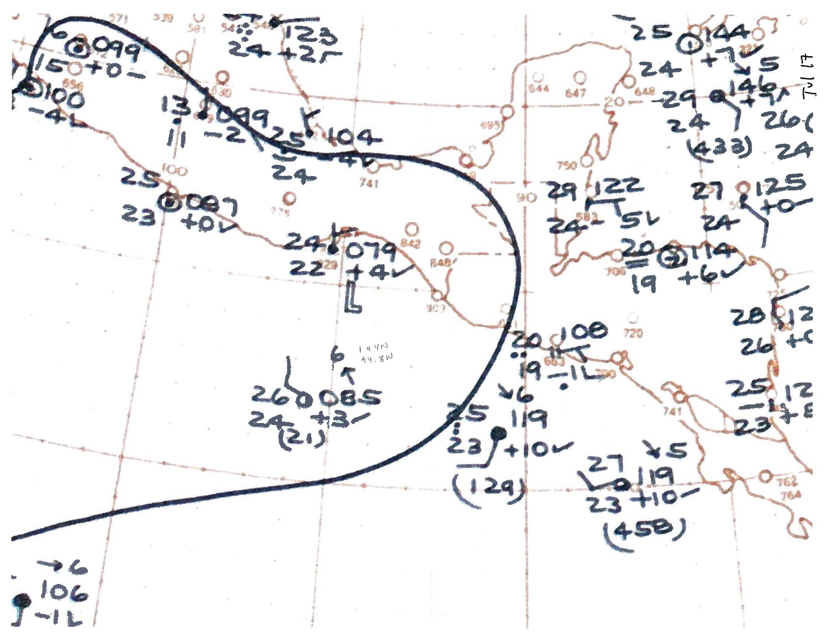 571
539
581
123
24 +25
6 099
15 +0-
656
100
-4
630
13 099
11 -2
25 104
24 -4
741
100
25 087
23 +0
775
24 079
22 +4
842
848
903
L
6
14.4N
94.8W
26 085
24 +3
(21)
→6
106
-12
695
644
647
648
20
90
750
25 144
24 +7
5
29 146
24 +9
(433)
26
24
Jul 17
29 122
583
24 - 5
27 125
24 +0
706
20 114
19 +6
28 12
26
20 108
19 -12
720
741
25 12
23 +8
6
25 119
23 +10
(129)
5
27 119
23 +10
(458)
762
764